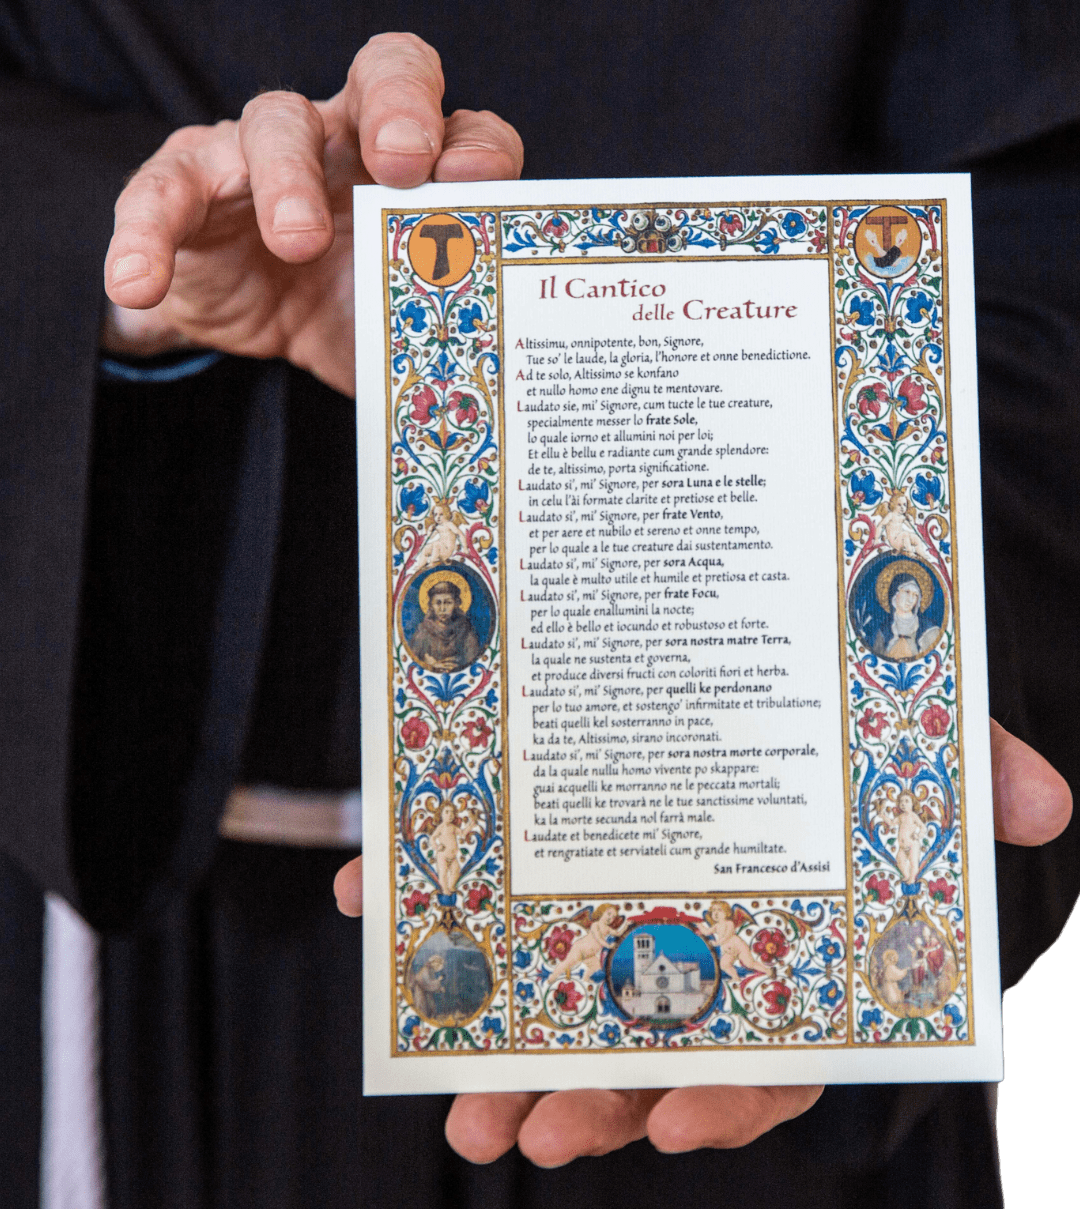 Il Cantico
delle Creature
Altissimu, onnipotente, bon, Signore,
Tue so' le laude, la gloria, l'honore et onne benedictione.
Ad te solo, Altissimo se konfano
et nullo homo ene dignu te mentovare.
Laudato sie, mi' Signore, cum tucte le tue creature,
specialmente messer lo frate Sole,
lo quale iorno et allumini noi per loi;
Et ellu è bellu e radiante cum grande splendore:
de te, altissimo, porta significatione.
Laudato si', mi' Signore, per sora Luna e le stelle;
in celu l'ài formate clarite et pretiose et belle.
Laudato si', mi' Signore, per frate Vento,
et per aere et nubilo et sereno et onne tempo,
per lo quale a le tue creature dai sustentamento.
Laudato si', mi' Signore, per sora Acqua,
la quale è multo utile et humile et pretiosa et casta.
Laudato si', mi' Signore, per frate Focu,
per lo quale enallumini la nocte;
ed ello è bello et iocundo et robustoso et forte.
Laudato si', mi' Signore, per sora nostra matre Terra,
la quale ne sustenta et governa,
et produce diversi fructi con coloriti fiori et herba.
Laudato si', mi' Signore, per quelli ke perdonano
per lo tuo amore, et sostengo' infirmitate et tribulatione;
beati quelli kel sosterranno in pace,
ka da te, Altissimo, sirano incoronati.
Laudato si', mi' Signore, per sora nostra morte corporale,
da la quale nullu homo vivente po skappare:
guai acquelli ke morranno ne le peccata mortali;
beati quelli ke trovarà ne le tue sanctissime voluntati,
ka la morte secunda nol farrà male.
Laudate et benedicete mi' Signore,
et rengratiate et serviateli cum grande humiltate.
San Francesco d'Assisi